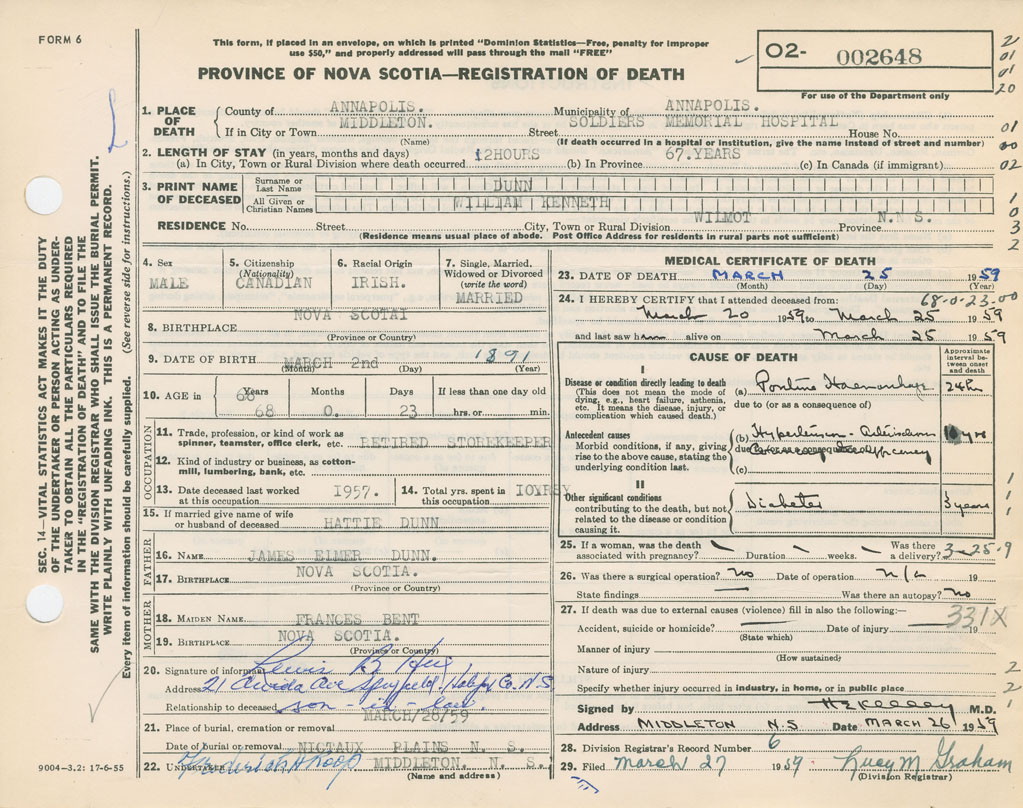 FORM 6
This form, if placed in an envelope, on which is printed "Dominion Statistics—Free, penalty for improper
use $50," and properly addressed will pass through the mail "FREE"
PROVINCE OF NOVA SCOTIA—REGISTRATION OF DEATH
O2- 002648
For use of the Department only
2
01
01
20
01
00
02
1
0
3
2
SEC. 14—VITAL STATISTICS ACT MAKES IT THE DUTY
OF THE UNDERTAKER OR PERSON ACTING AS UNDER-
TAKER TO OBTAIN ALL THE PARTICULARS REQUIRED
IN THE "REGISTRATION OF DEATH" AND TO FILE THE
SAME WITH THE DIVISION REGISTRAR WHO SHALL ISSUE THE BURIAL PERMIT.
WRITE PLAINLY WITH UNFADING INK. THIS IS A PERMANENT RECORD.
Every item of information should be carefully supplied. (See reverse side for instructions.)
1. PLACE OF DEATH
County of ANNAPOLIS. Municipality of ANNAPOLIS.
If in City or Town MIDDLETON. Street SOLDIERS MEMORIAL HOSPITAL House No.
(Name) (If death occurred in a hospital or institution, give the name instead of street and number)
2. LENGTH OF STAY (in years, months and days)
(a) In City, Town or Rural Division where death occurred 12HOURS (b) In Province 67.YEARS (c) In Canada (if immigrant)
3. PRINT NAME OF DECEASED
Surname or Last Name DUNN
All Given or Christian Names WILLIAM KENNETH
RESIDENCE No. Street City, Town or Rural Division WILMOT Province N.N S.
(Residence means usual place of abode. Post Office Address for residents in rural parts not sufficient)
4. Sex
MALE
5. Citizenship (Nationality)
CANADIAN
6. Racial Origin
IRISH.
7. Single, Married, Widowed or Divorced (write the word)
MARRIED
8. BIRTHPLACE NOVA SCOTAI
(Province or Country)
9. DATE OF BIRTH MARCH 2nd 1891
(Month) (Day) (Year)
10. AGE in
Years Months Days If less than one day old
68
68 0. 23 hrs. or min.
OCCUPATION
11. Trade, profession, or kind of work as
spinner, teamster, office clerk, etc. RETIRED STOREKEEPER
12. Kind of industry or business, as cotton-
mill, lumbering, bank, etc.
13. Date deceased last worked
at this occupation 1957.
14. Total yrs. spent in
this occupation IOYRSY
15. If married give name of wife
or husband of deceased HATTIE DUNN
FATHER
16. NAME JAMES ELMER DUNN.
17. BIRTHPLACE NOVA SCOTIA.
(Province or Country)
MOTHER
18. MAIDEN NAME FRANCES BENT
19. BIRTHPLACE NOVA SCOTIA.
(Province or Country)
20. Signature of informant Lewis B
Address 21 Ave Spryfield Halifax Co. N.S
Relationship to deceased son - in - law.
MARCH/28/59
21. Place of burial, cremation or removal
Date of burial or removal NICTAUX PLAINS N. S.
22. UNDERTAKER MIDDLETON N. S.
(Name and address)
9004-3.2: 17-6-55
MEDICAL CERTIFICATE OF DEATH
23. DATE OF DEATH MARCH 25 1959
(Month) (Day) (Year)
24. I HEREBY CERTIFY that I attended deceased from: 68-0-23-00
March 20 1959 to March 25 1959
and last saw h alive on March 25 1959
CAUSE OF DEATH
Approximate interval between onset and death
I
Disease or condition directly leading to death
(This does not mean the mode of
dying, e.g., heart failure, asthenia,
etc. It means the disease, injury, or
complication which caused death.)
(a) Pontine Haemorrhage 24 hr
due to (or as a consequence of)
Antecedent causes
Morbid conditions, if any, giving
rise to the above cause, stating the
underlying condition last.
(b) Hypertension - 10 yrs
due
(c)
II
Other significant conditions
contributing to the death, but not
related to the disease or condition
causing it.
Diabetes 3 years
1
1
1
25. If a woman, was the death
associated with pregnancy? Duration weeks. Was there
a delivery? 3-25-9
26. Was there a surgical operation? no Date of operation n/a 19
State findings Was there an autopsy? no
27. If death was due to external causes (violence) fill in also the following:— 331X
Accident, suicide or homicide? Date of injury 19
(State which)
Manner of injury
(How sustained)
Nature of injury 2
Specify whether injury occurred in industry, in home, or in public place 2
Signed by H E Kelley M.D. 1
Address MIDDLETON N.S Date MARCH 26 1959
28. Division Registrar's Record Number 6
29. Filed March 27 1959 Lucy M Graham
(Division Registrar)